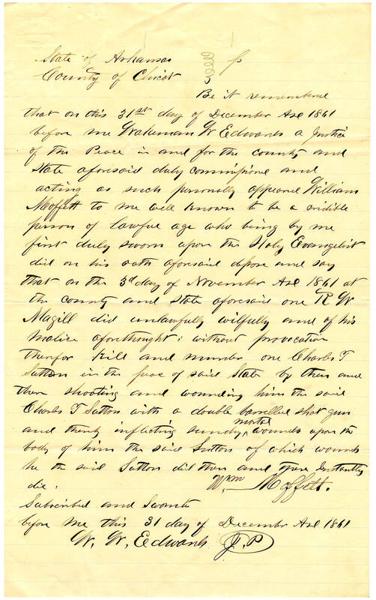 State of Arkansas
County of Chicot
Be it remembered
that on this 31st day of December A.D. 1861
before me Wakeman W Edwards a Justice
of the Peace in and for the county and
State aforesaid duly commissioned and
acting as such personally appeared William
Moffett to me well known to be a credible
person of lawful age who being by me
first duly sworn upon the Holy Evangelist
did on his oath aforesaid depose and say
that on the 3d day of November A.D. 1861 at
the county and state aforesaid one R. W.
Magill did unlawfully wilfully and of his
malice aforethought & without provocation
therefor Kill and murder one Charles T
Sutton in the peace of said State by then and
there shooting and wounding him the said
Charles T Sutton with a double barrelled shot gun
and thereby inflicting sundry mortal wounds upon the
body of him the said Sutton of which wounds
he the said Sutton did then and there Instantly
die.
Wm Moffett.
Subscribed and Sworn to
before me this 31 day of December A.D. 1861
W. W. Edwards J.P.